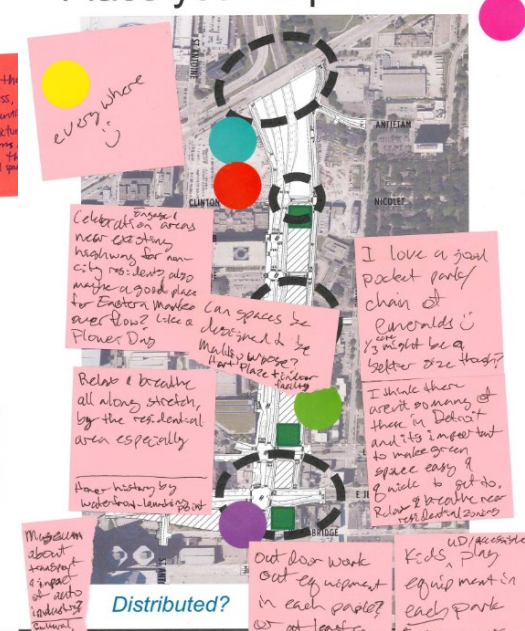 Place your
everywhere
ST ANTOINE
ANTIETAM
CLINTON
NICOLET
Engage /
Celebration areas
near existing
highway for non-
city residents, also
maybe a good place
for Eastern Market
overflow? Like a
Flower Day
Can spaces be
designed to be
Multi-purpose?
Hart Plaza + indoor
facility
I love a good
pocket park/
chain of
emeralds
1/3 acre might be a
better size though?
Relax & breathe
all along stretch,
by the residential
area especially
Honor history by
waterfront-launching point
I think there
aren't so many of
these in Detroit
and it's important
to make green
space easy &
quick to get to.
Relax & breathe near
residential zones
E JE
BRIDGE
Museum
about
transport
& impact
of auto
industry?
Cultural,
Distributed?
Out door work
out equipment
in each park?
or at least
UD/accessible
Kids play
equipment in
each park